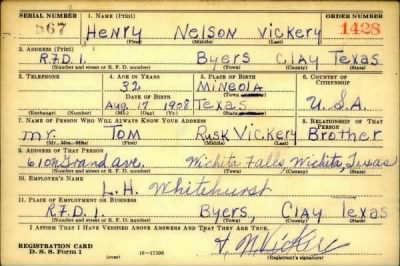 SERIAL NUMBER 1. NAME (Print) ORDER NUMBER
867 Henry Nelson Vickery 1428
(First) (Middle) (Last)
2. ADDRESS (Print)
R.F.D. 1. Byers Clay Texas
(Number and street or R. F. D. number) (Town) (County) (State)
3. TELEPHONE 4. AGE IN YEARS 5. PLACE OF BIRTH 6. COUNTRY OF CITIZENSHIP
32 Mineola
DATE OF BIRTH (Town or county)
Aug 17 1908 Texas U.S.A.
(Exchange) (Number) (Mo.) (Day) (Yr.) (State or country)
7. NAME OF PERSON WHO WILL ALWAYS KNOW YOUR ADDRESS 8. RELATIONSHIP OF THAT PERSON
mr. Tom Rusk Vickery Brother
(Mr., Mrs., Miss) (First) (Middle) (Last)
9. ADDRESS OF THAT PERSON
Grand ave. Wichita Falls, Wichita, Texas
(Number and street or R. F. D. number) (Town) (County) (State)
10. EMPLOYER'S NAME
L. H. Whitehurst
11. PLACE OF EMPLOYMENT OR BUSINESS
R.F.D. 1. Byers, Clay Texas
(Number and street or R. F. D. number) (Town) (County) (State)
I AFFIRM THAT I HAVE VERIFIED ABOVE ANSWERS AND THAT THEY ARE TRUE.
REGISTRATION CARD
D. S. S. Form 1 (over) 16-17105 (Registrant's signature)